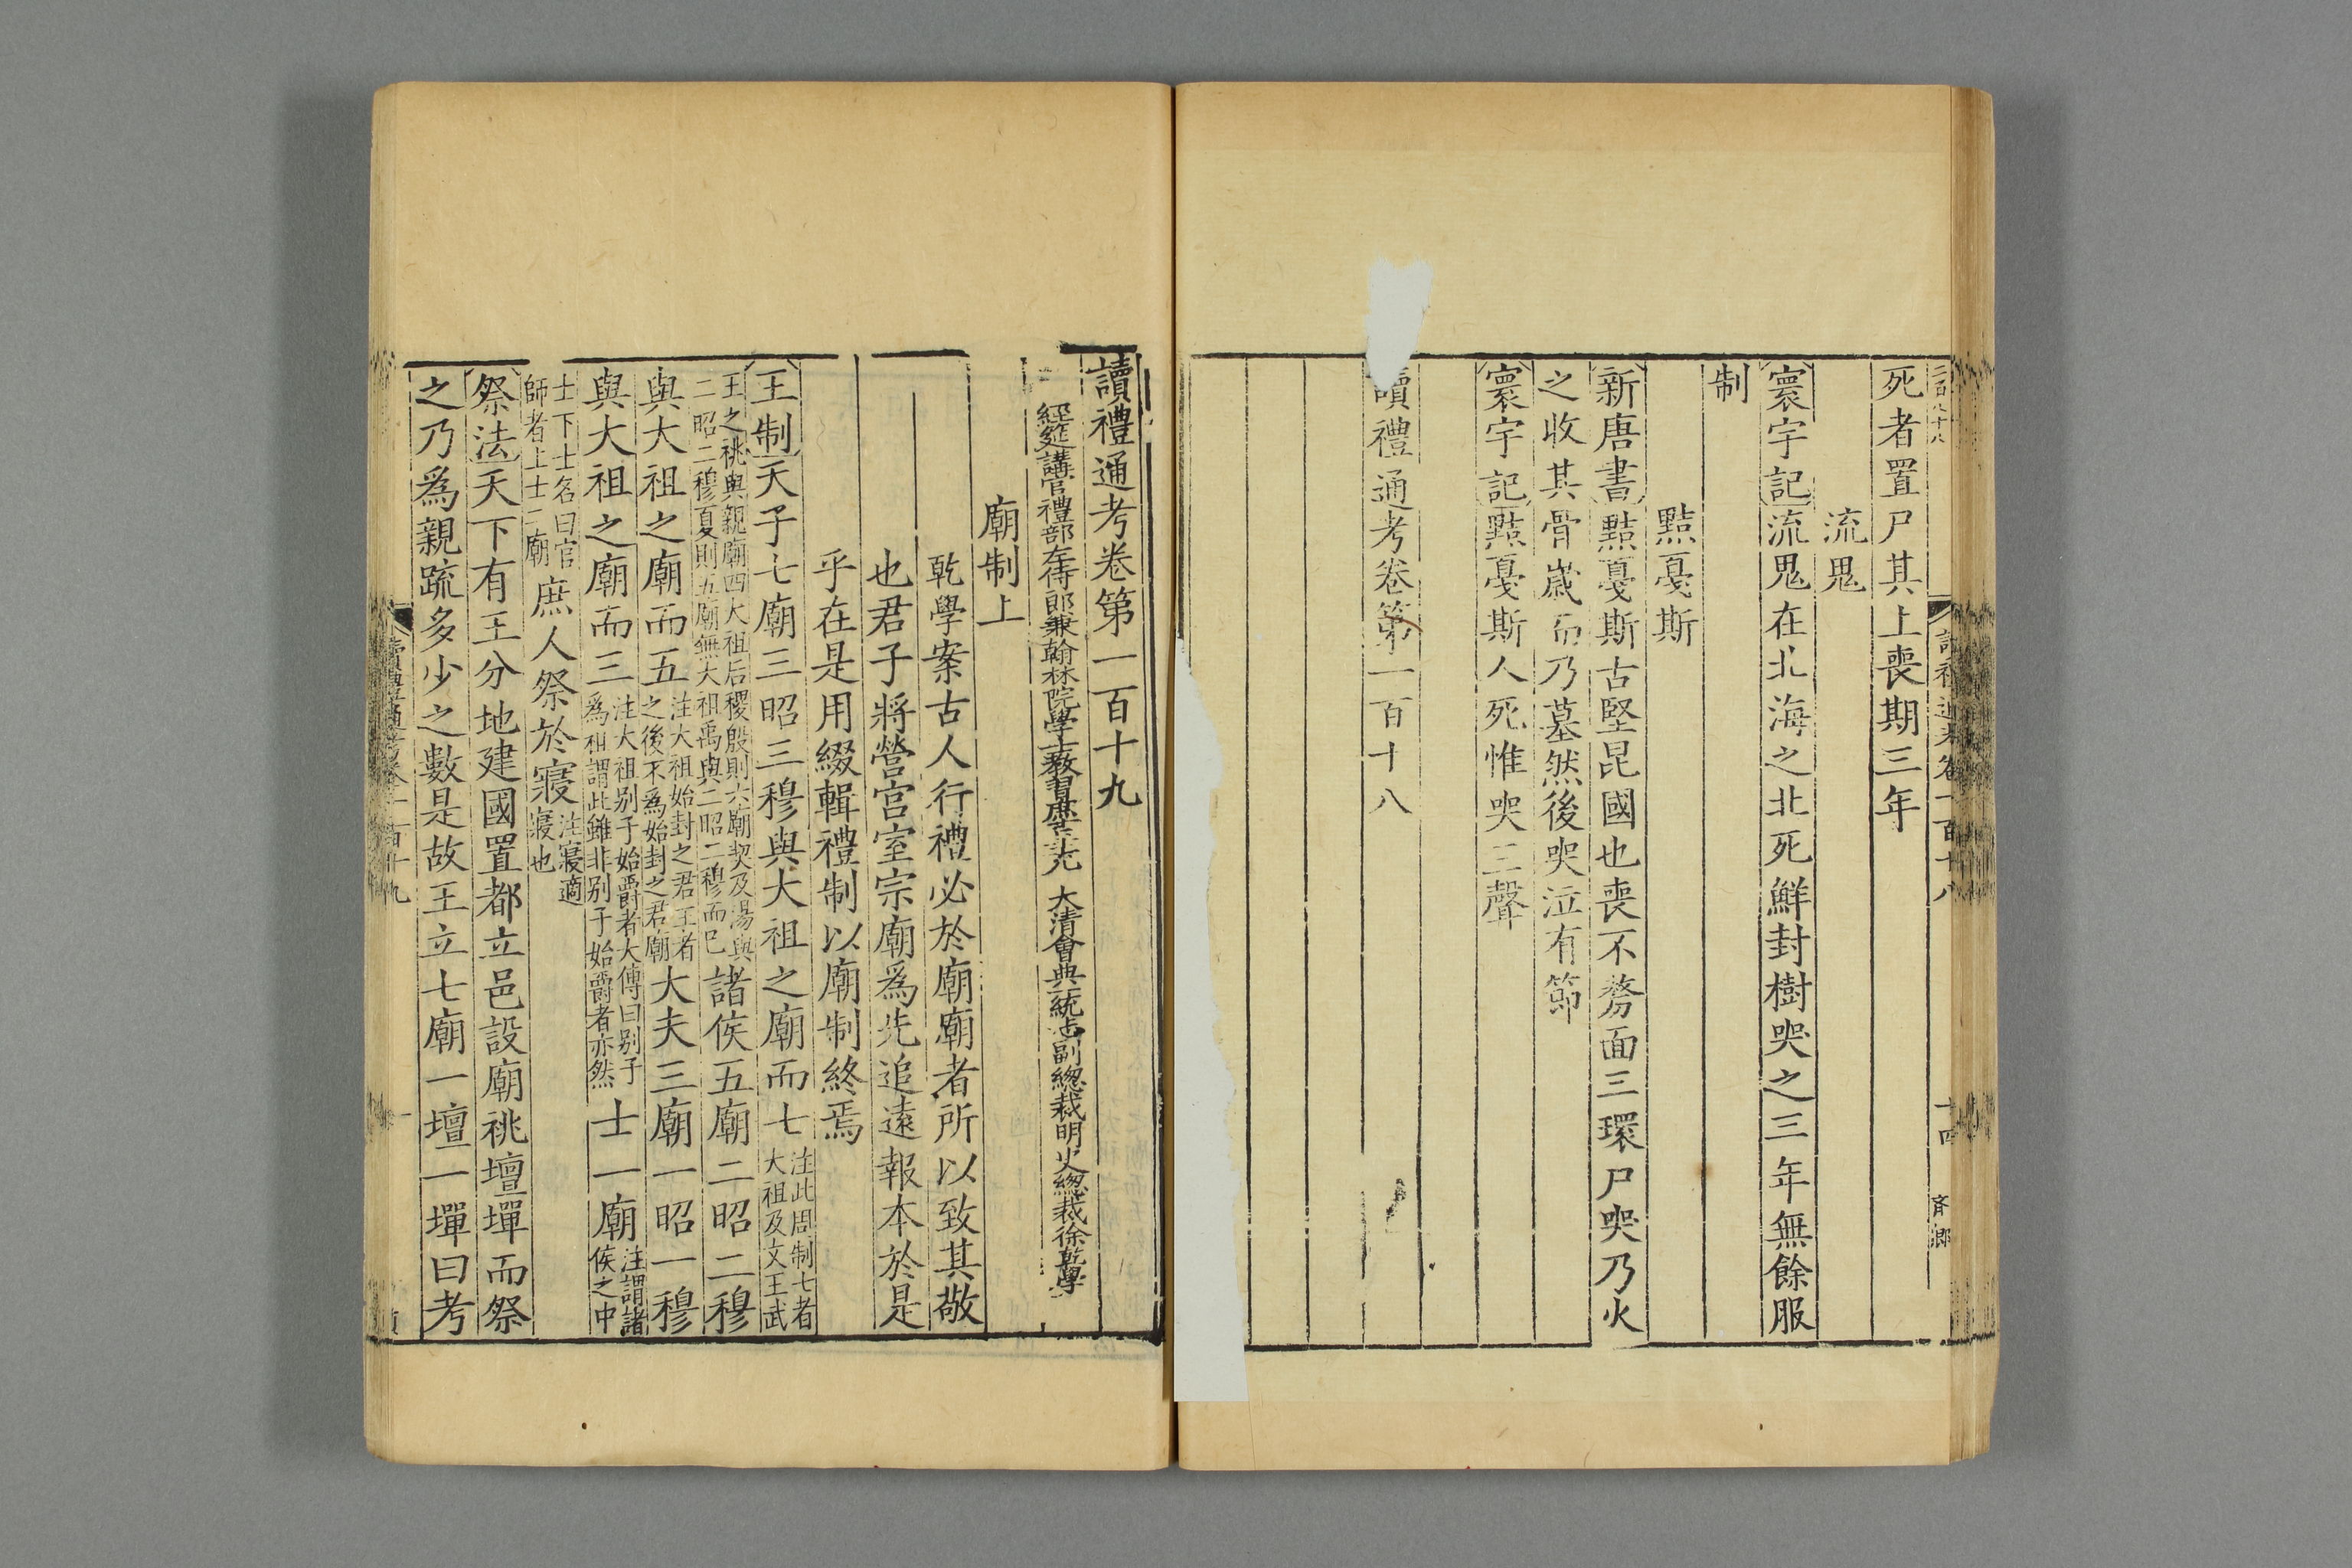 死者置尸其上喪期三年
流鬼
寰宇記流鬼在北海之北死鮮封樹哭之三年無餘服
制
黠戛斯
新唐書黠戛斯古堅昆國也喪不剺面三環尸哭乃火
之收其骨嵗而乃墓然後哭泣有節
寰宇記黠戛斯人死惟哭三聲
讀禮通考卷第一百十八
讀禮通考卷第一百十九
經筵講官禮部左侍郎兼翰林院學士教習庶吉士 大清會典一統志副總裁明史總裁徐乾學
廟制上
乾學案古人行禮必於廟廟者所以致其敬
也君子將營宫室宗廟爲先追遠報本於是
乎在是用綴輯禮制以廟制終焉
王制天子七廟三昭三穆與大祖之廟而七注此周制七者大祖及文王武
王之祧與親廟四大祖后稷殷則六廟契及湯與二昭二穆夏則五廟無大祖禹與二昭二穆而已諸侯五廟二昭二穆
與大祖之廟而五注大祖始封之君王者之後不爲始封之君廟大夫三廟一昭一穆
與大祖之廟而三注大祖别子始爵者大傳曰别子爲祖謂此雖非别子始爵者亦然士一廟注謂諸侯之中
士下士名曰官師者上士二廟庶人祭於寢注寢適寢也
祭法天下有王分地建國置都立邑設廟祧壇墠而祭
之乃爲親䟽多少之數是故王立七廟一壇一墠曰考